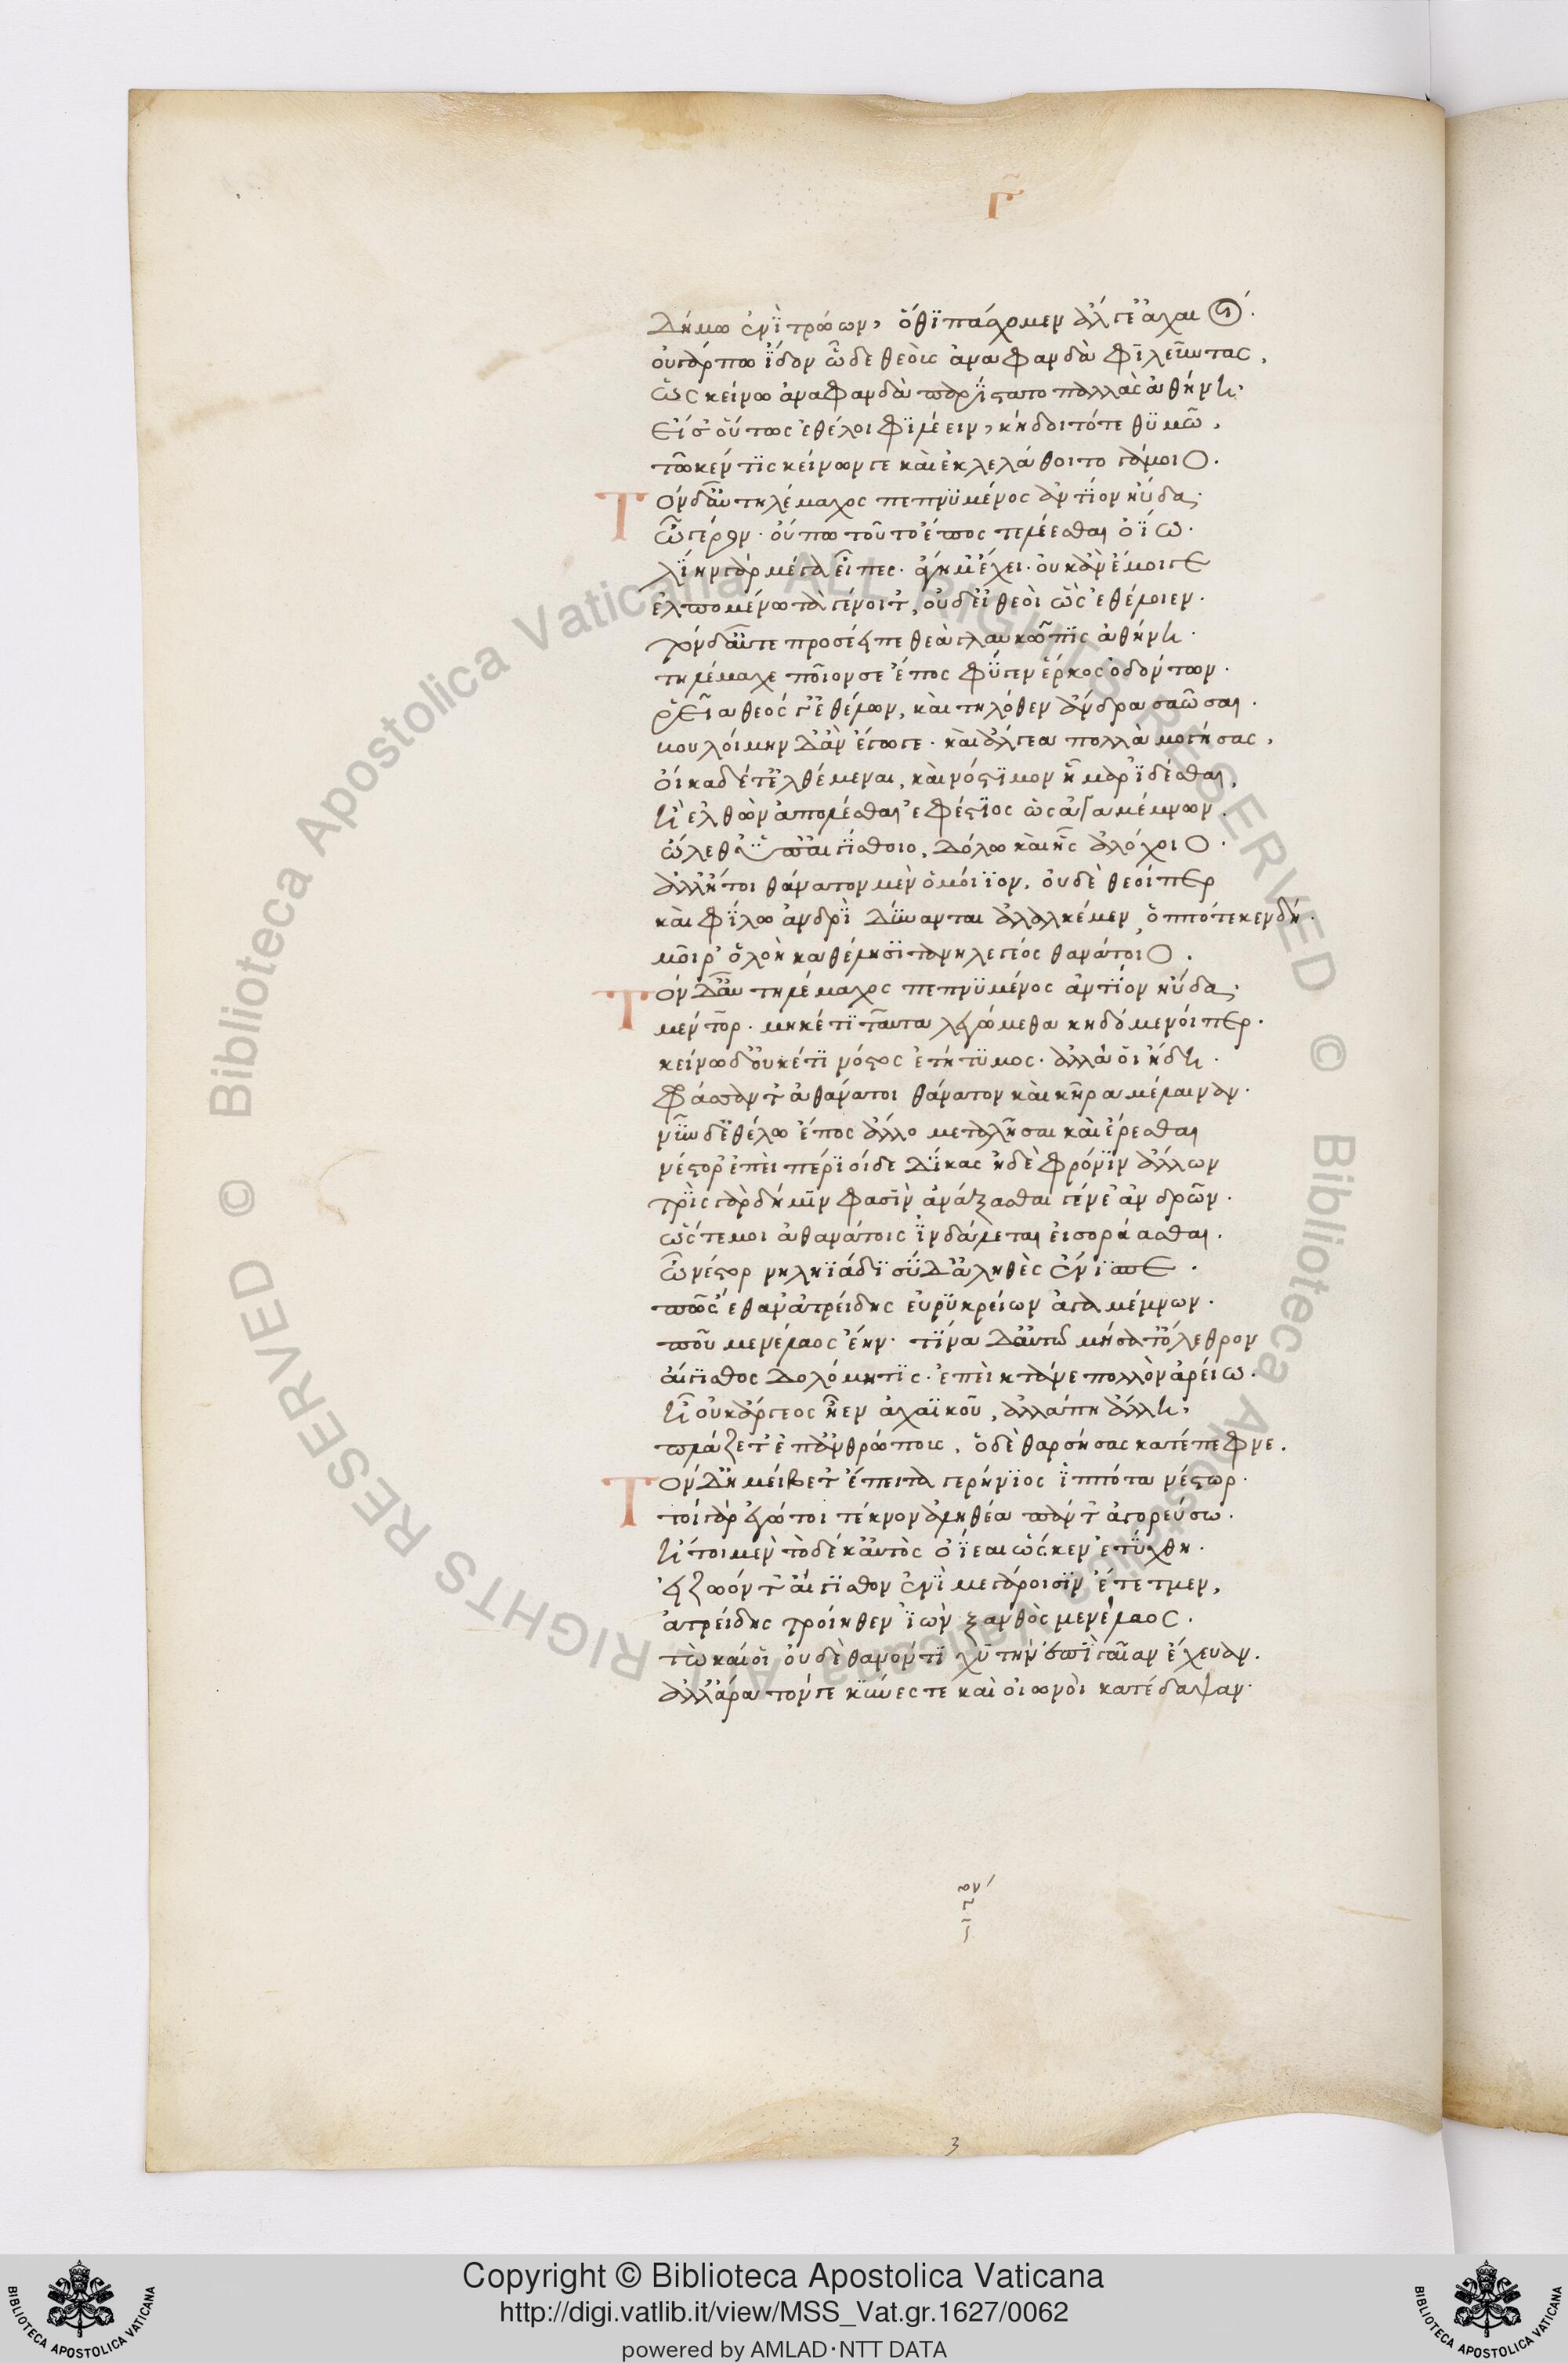 Γ
Δήμω ἐνὶ τρώων, ὅθϊ πάσχομεν ἄλγε ἀχαιοί·
οὐ γάρ πω ἴδον ὧδε θεοὺς ἀναφανδὰ φϊλεῦντας,
ὡς κείνω ἀναφανδὰ παρΐστατο παλλὰς ἀθήνη·
εἴ σ' οὕτως ἐθέλοι φϊλέειν, κήδοιτό τε θϋμῶ,
τῶ κέν τϊς κείνων γε καὶ ἐκλελάθοιτο γάμοιο.
Τὸν δ' αὖ τηλέμαχος πεπνϋμένος ἀντΐον ηὔδα·
ὦ γέρον· οὔπω τοῦτο ἔπος τελέεσθαι ὀΐω·
λΐην γὰρ μέγα εἶπες· ἄγη μ' ἔχει· οὐκ ἂν ἔμοιγε
ἐλπομένω τὰ γένοιτ', οὐδ' εἰ θεοὶ ὣς ἐθέλοιεν·
Τὸν δ' αὖτε προσέειπε θεὰ γλαυκῶπϊς ἀθήνη·
τηλέμαχε ποῖον σε ἔπος φύγεν ἕρκος ὀδόντων·
ῥεῖα θεός γ' ἐθέλων, καὶ τηλόθεν ἄνδρα σαῶσαι·
βουλοίμην δ' ἂν ἔγωγε· καὶ ἄλγεα πολλὰ μογήσας,
οἴκαδέ τ' ἐλθέμεναι, καὶ νόστϊμον ἦμαρ ἰδέσθαι,
ἢ ἐλθὼν ἀπολέσθαι ἐφέστϊος ὡς ἀγαμέμνων·
ὤλεθ' ὑπ' αἰγΐσθοιο, δόλω καὶ ἧς ἀλόχοιο·
ἀλλ' ἤτοι θάνατον μὲν ὁμοίϊον, οὐδὲ θεοί περ
καὶ φΐλω ἀνδρΐ δύνανται ἀλαλκέμεν, ὁππότε κεν δή·
μοῖρ' ὀλοὴ καθέλησϊ τανηλεγέος θανάτοιο·
Τὸν δ' αὖ τηλέμαχος πεπνϋμένος ἀντΐον ηὔδα·
μέντορ· μηκέτϊ ταῦτα λεγώμεθα κηδόμενοί περ·
κείνω δ' οὐκέτϊ νόστος ἐτήτϋμος· ἀλλά οἱ ἤδη·
φράσσαντ' ἀθάνατοι θάνατον καὶ κῆρα μέλαιναν·
νῦν δ' ἐθέλω ἔπος ἄλλο μεταλλῆσαι καὶ ἐρέσθαι
νέστορ' ἐπεὶ περΐοιδε δΐκας ἠδὲ φρόνϊν ἄλλων
τρὶς γὰρ δή μϊν φασὶν ἀνάξασθαι γένε' ἀνδρῶν·
ὥς τε μοι ἀθανάτοις ἰνδάλεται εἰσοράασθαι·
ὦ νέστορ νηληϊάδϊ σὺ δ' ἀληθὲς ἔνϊσπε·
πῶς ἔθαν' ἀτρείδης εὐρϋκρείων ἀγαμέμνων·
ποῦ μενέλαος ἔην· τΐνα δ' αὐτῶ μήσατ' ὄλεθρον
αἴγϊσθος δολόμητϊς· ἐπεὶ κτάνε πολλὸν ἀρείω·
ἢ οὐκ ἄργεος ἦεν ἀχαϊκοῦ, ἀλλά πη ἄλλη,
πλάζετ' ἐπ' ἀνθρώπους, ὁ δὲ θαρσήσας κατέπεφνε·
Τὸν δ' ἠμείβετ' ἔπειτα γερήνϊος ἱππότα νέστωρ·
τοί γὰρ ἐγώ τοι τέκνον ἀληθέα πάντ' ἀγορεύσω·
ἤτοι μὲν τόδε κ' αὐτὸς ὀΐεαι ὥς κεν ἐτύχθη·
εἰ ζωόν τ' αἴγϊσθον ἐνὶ μεγάροισϊν ἔτετμεν,
ἀτρείδης τροίηθεν ἰὼν ξανθὸς μενέλαος·
τῶ καί οἱ οὐδὲ θανόντϊ χϋτὴν ἐπὶ γαῖαν ἔχευαν·
ἀλλ' ἄρα τόν γε κύνες τε καὶ οἰωνοὶ κατέδαψαν·
3
Copyright © Biblioteca Apostolica Vaticana
http://digi.vatlib.it/view/MSS_Vat.gr.1627/0062
powered by AMLAD·NTT DATA
BIBLIOTECA APOSTOLICA VATICANA
BIBLIOTECA APOSTOLICA VATICANA
© Biblioteca Apostolica Vaticana ALL RIGHTS RESERVED © Biblioteca Apostolica Vaticana ALL RIGHTS RESERVED